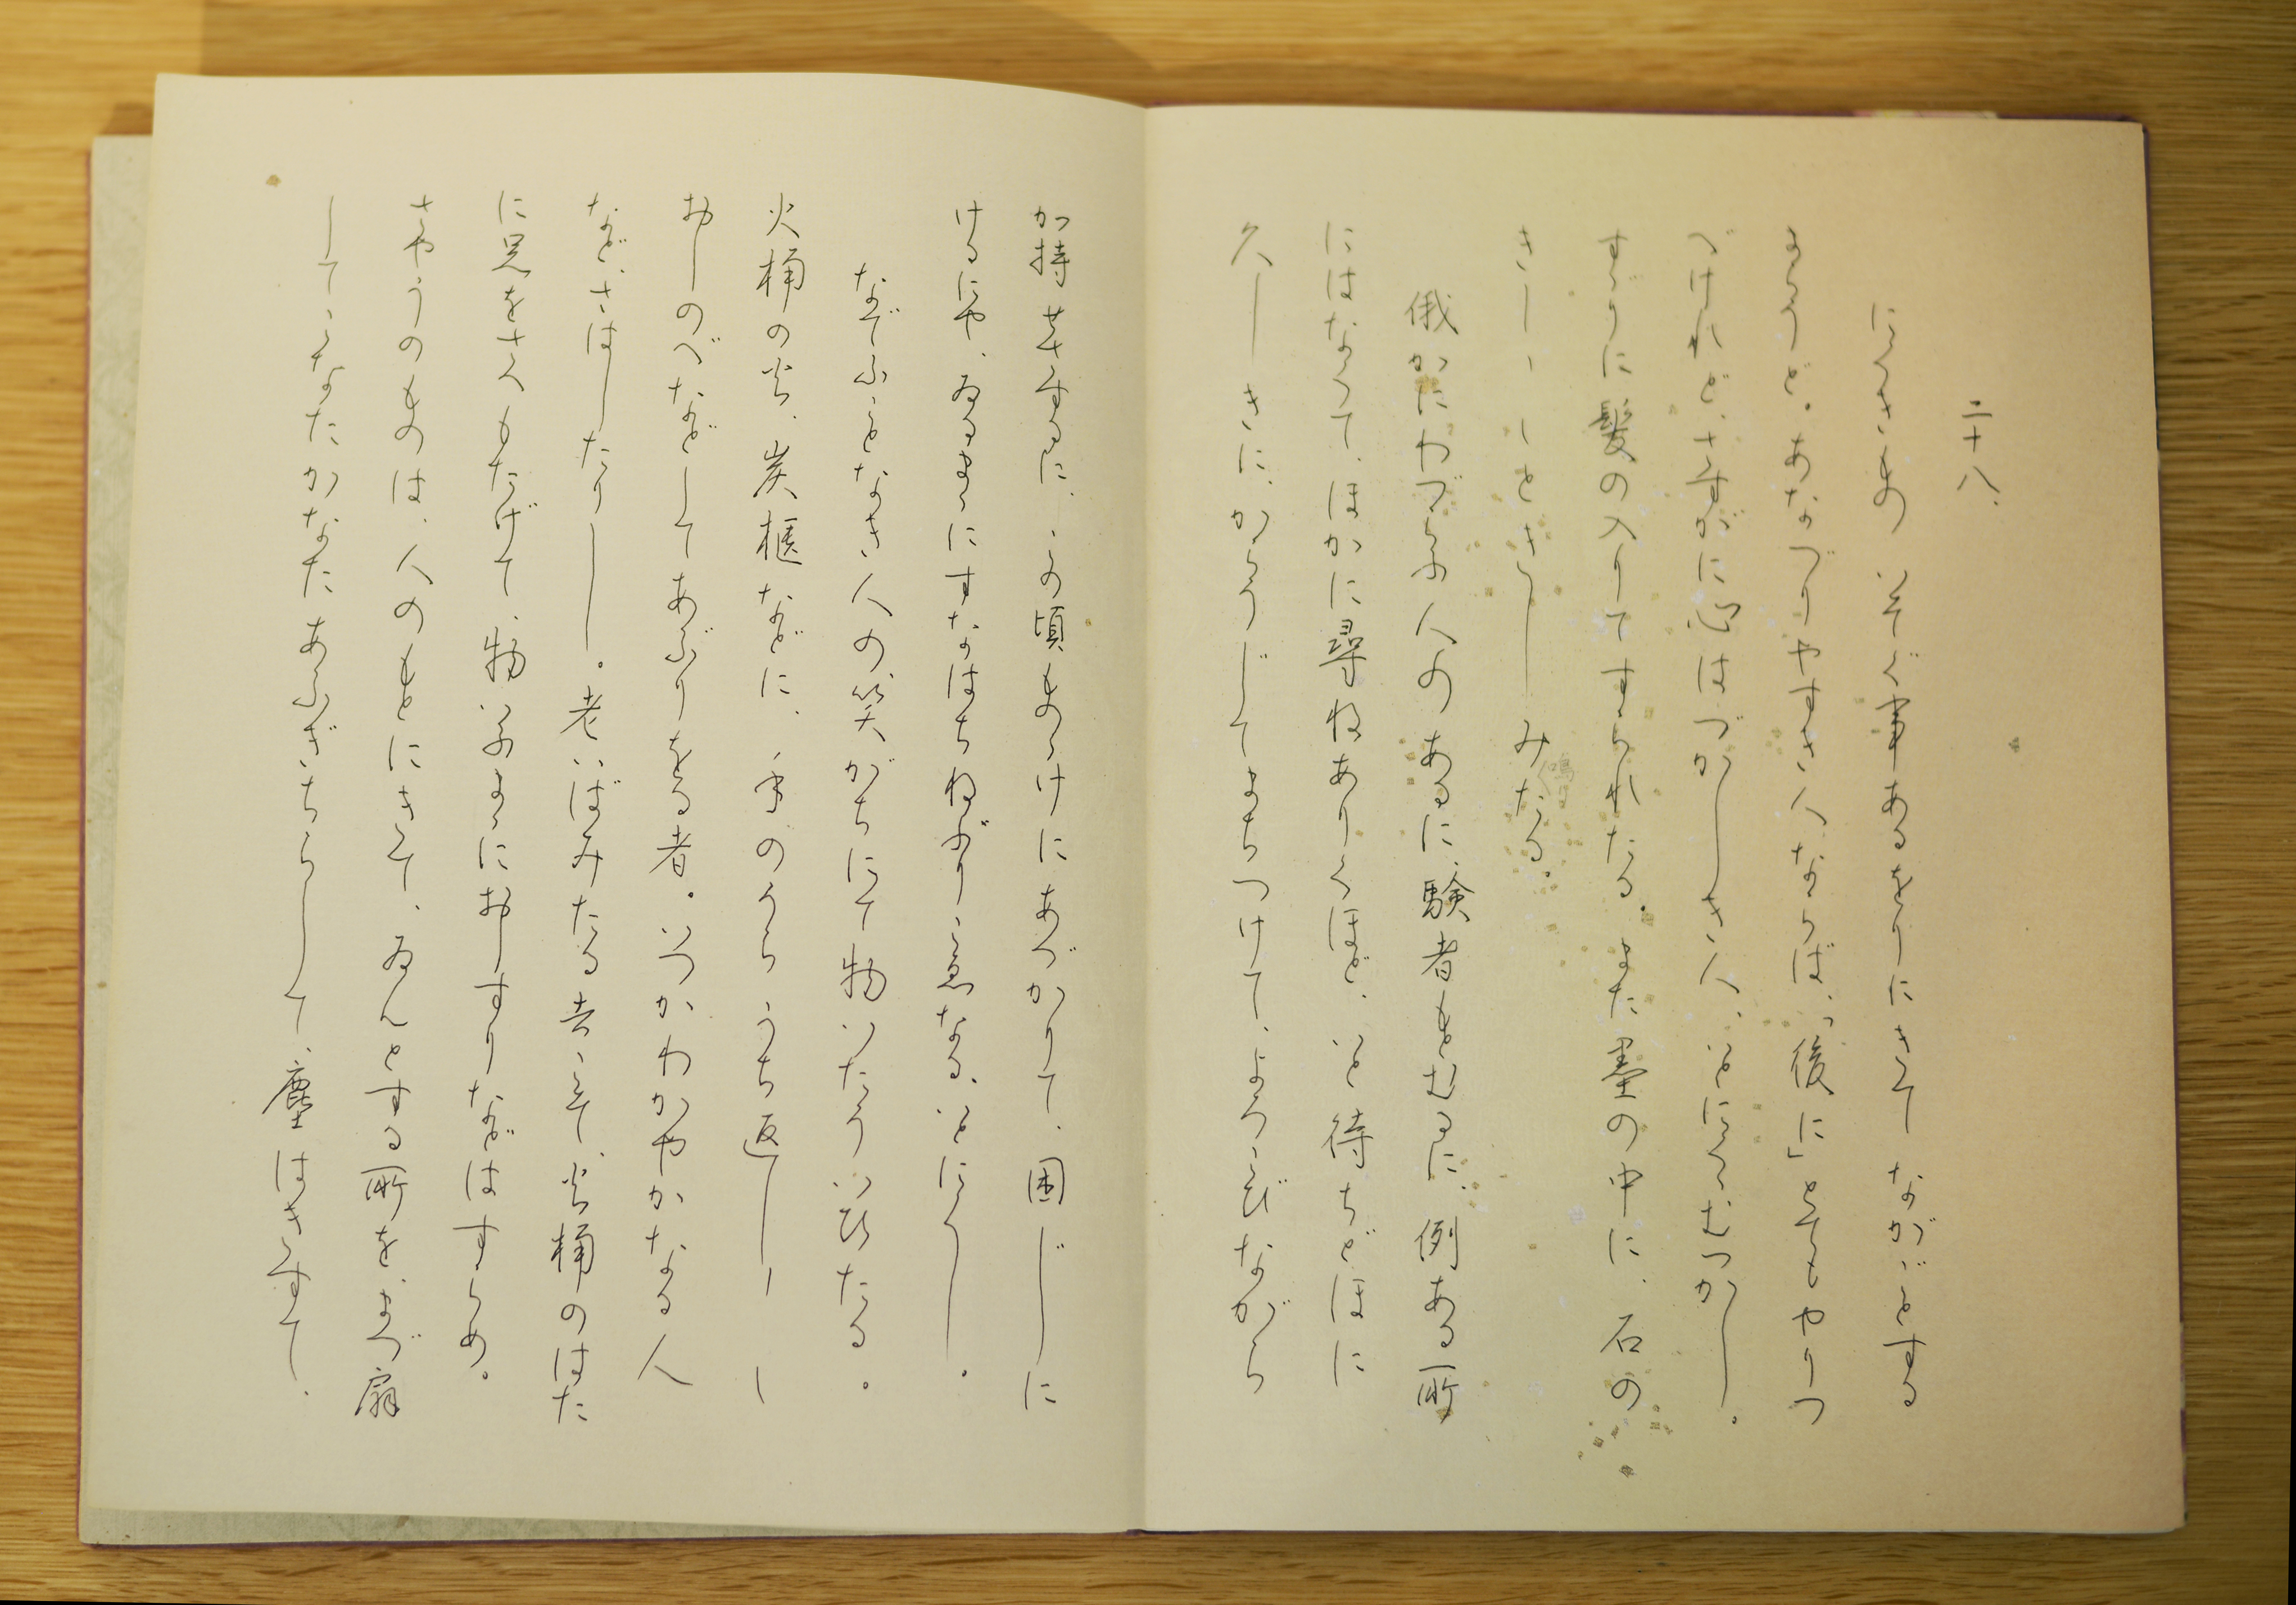 二十八、
にくきもの いそぐ事あるをりにきて ながごとする
まらうど。あなづりやすき人ならば、「後に」とてもやりつ
べけれど、さすがに心はづかしき人、いとにくくむつかし。
すずりに髪の入りてすられたる。また墨の中に、石の
きしきしときしみたる。
俄かにわづらふ人のあるに、験者もとむるに、例ある所
にはなくて、ほかに尋ねありくほど、いと待ちどほに
久しきに、からうじてまちつけて、よろこびながら
加持せさするに、この頃もののけにあづかりて、困じに
けるにや、ゐるままにすなはちねぶりごゑなる、いとにくし。
なでふことなき人の笑がちにて物いたういひたる。
火桶の火、炭櫃などに、手のうらうち返しうち返し
おしのべなどしてあぶりをる者。いつかわかやかなる人
など、さはしたりし。老いばみたる者こそ、火桶のはた
に足をさへもたげて、物いふままにおしすりなどはすらめ。
さやうのものは、人のもとにきて、ゐんとする所を、まづ扇
してこなたかなたあふぎちらして、塵はきすて、